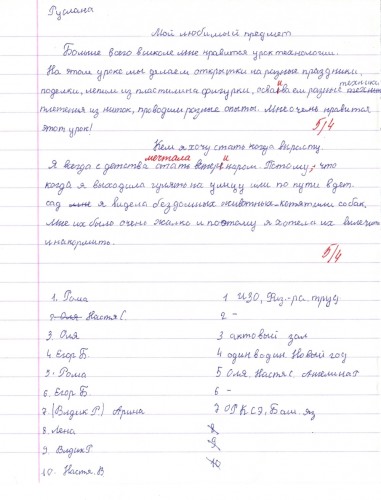 Руслана
Мой любимый предмет
Больше всего в школе мне нравится урок технологии.
На этом уроке мы делаем открытки на разные праздники,
поделки, лепим из пластилина фигурки, осваиваем разные техники
плетения из ниток, проводим разные опыты. Мне очень нравится
этот урок!
5/4
Кем я хочу стать когда вырасту.
Я всегда с детства мечтала стать ветеринаром. Потому, что
когда я выходила гулять на улицу или по пути в дет.
сад я видела бездомных животных - котят или собак.
Мне их было очень жалко и поэтому я хотела их вылечить
и накормить.
5/4
1. Рома
1 ИЗО, Физ-ра, труд
2. Оля Настя С.
2 -
3. Оля
3 актовый зал
4. Егор Б.
4 один в один. Новый год
5. Рома
5 Оля, Настя С, Ангелина Т
6. Егор Б.
6 -
7. (Владик Р.) Арина
7 ОРКСЭ, Баш. яз
8. Лена
8
9. Владик Р
9
10. Настя. В
10